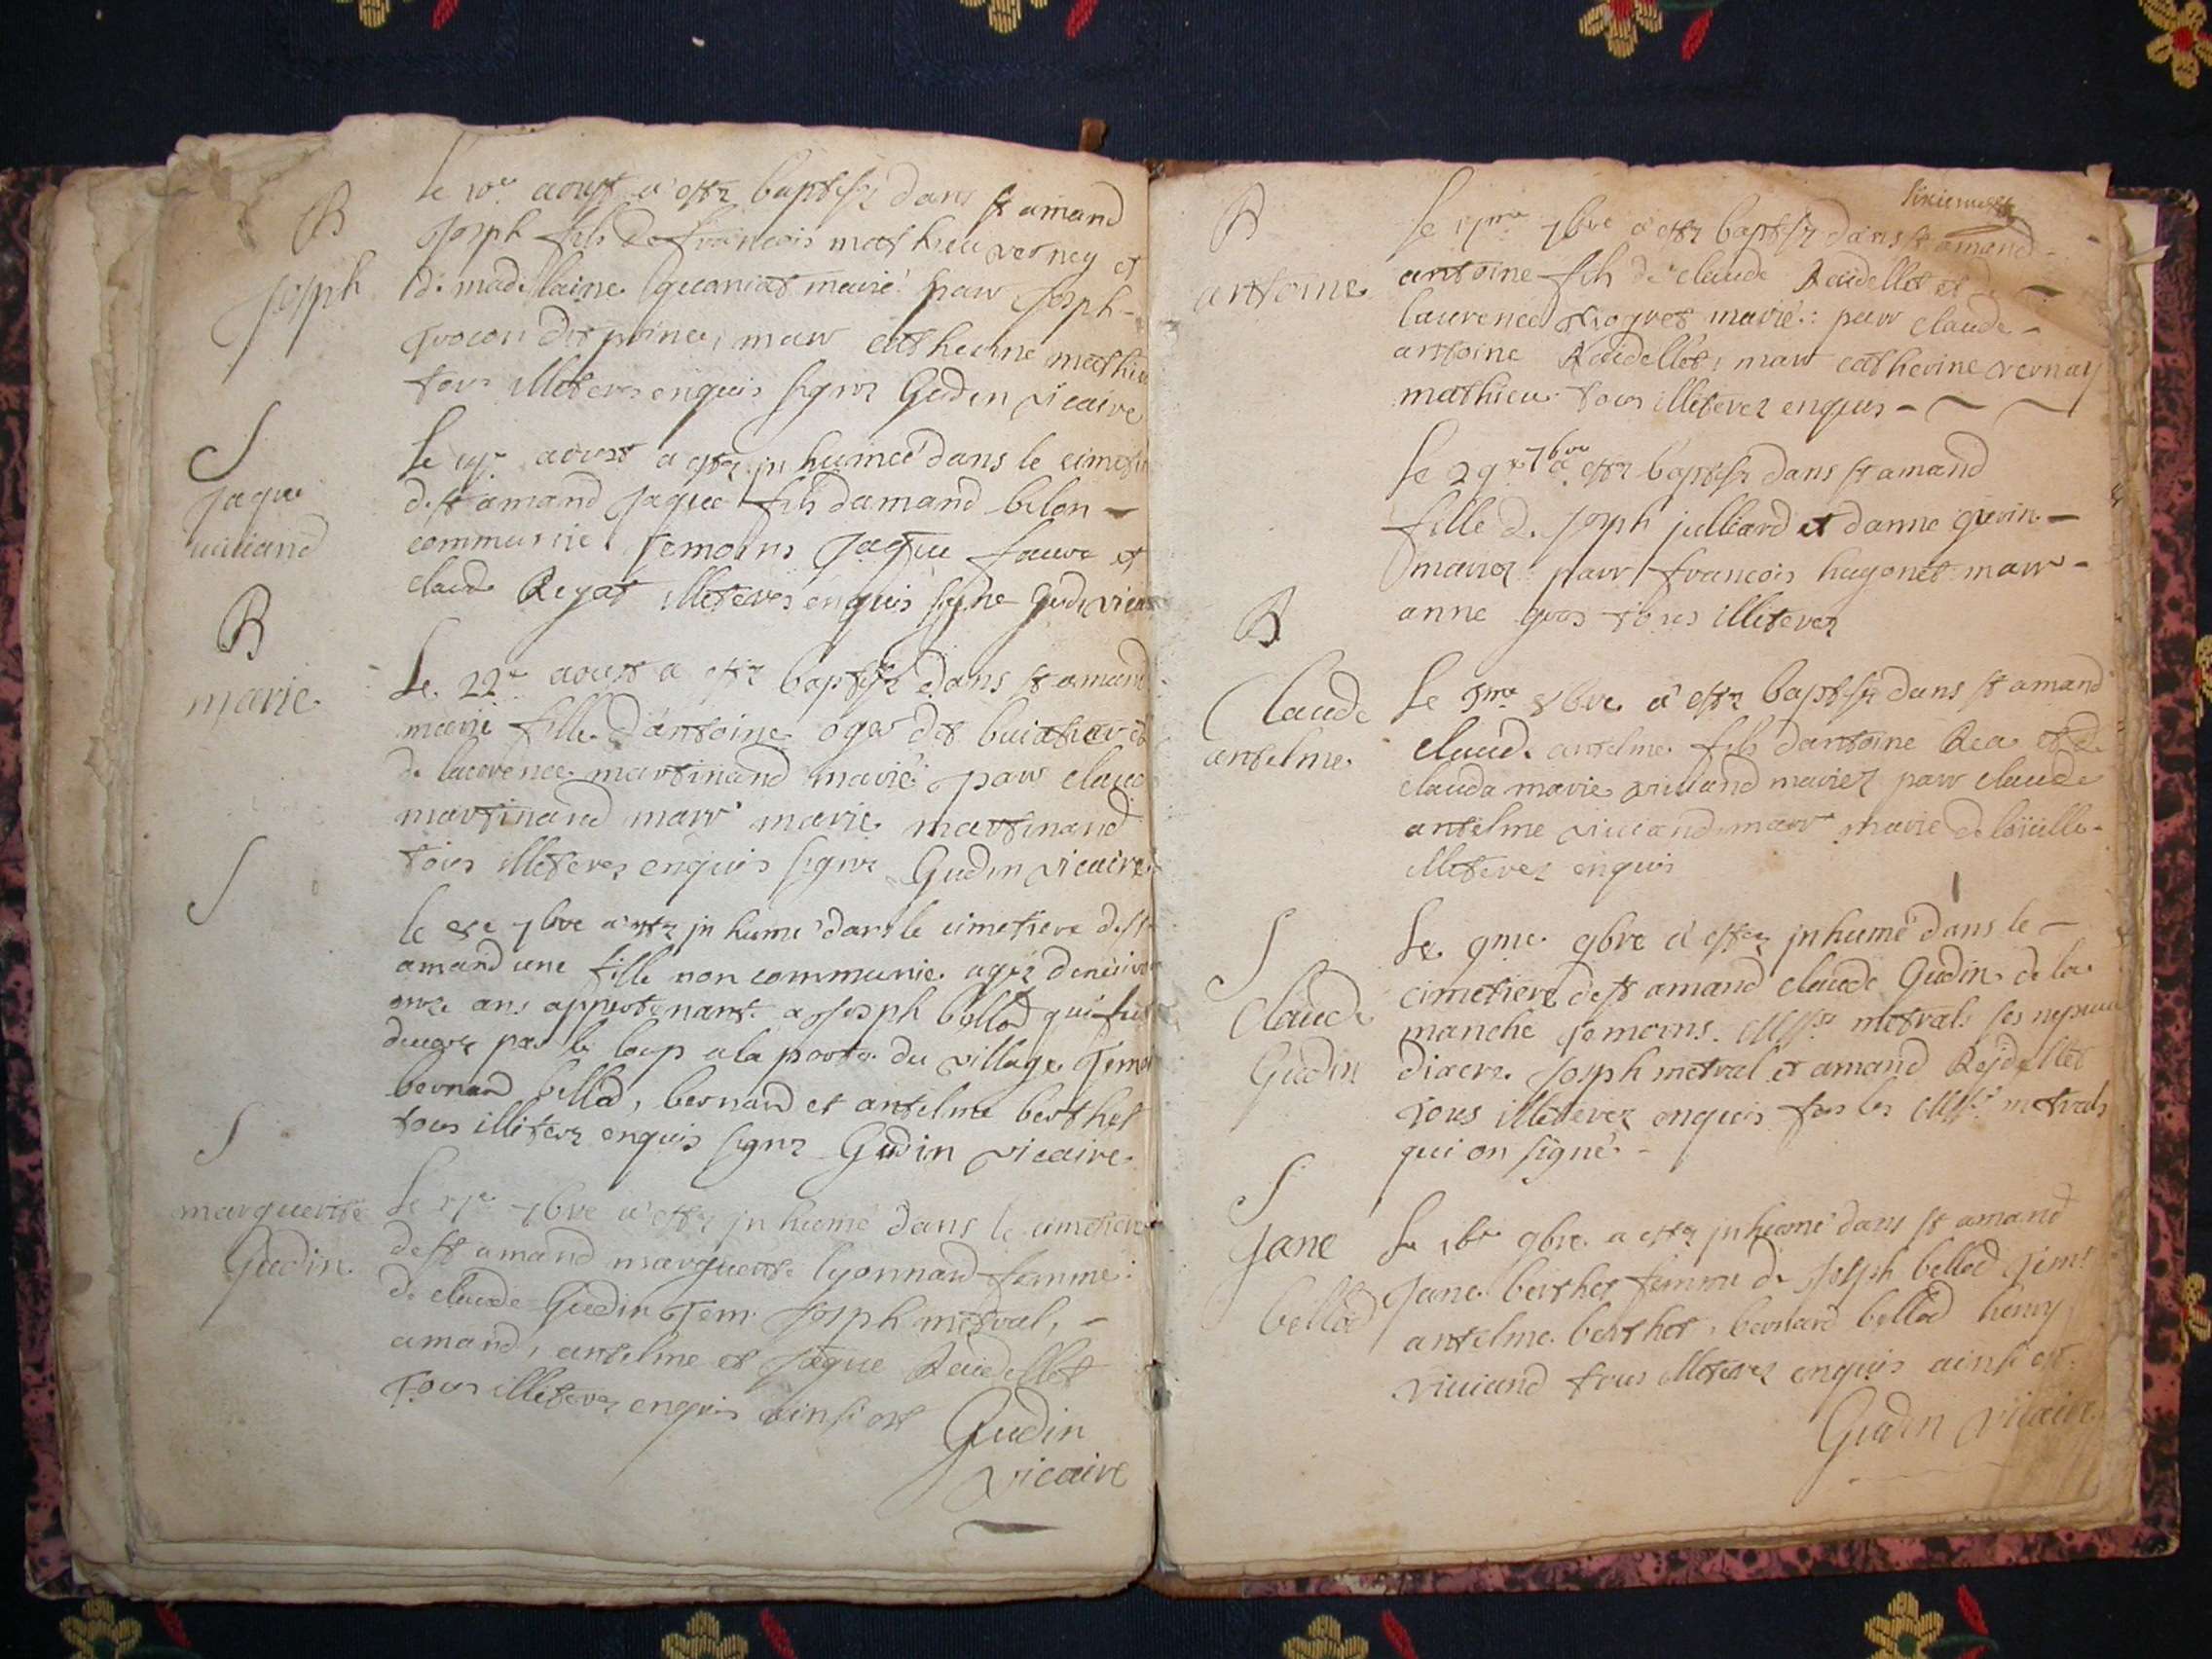 B
Joseph
le 10e aoust a estez baptisez dans st amand
Joseph fils de francois mathieu verney et
de madelaine mariè parr Joseph
dit prince, marr catherine mathieu
tous illiterez enquis signer Gudin vicaire
S
Jaque
viuiand
Le aoust a estez jnhumeé dans le cimetie
de st amand Jaque fils damand belon
communie temoins Jaque faure et
claude Reyat illiterez enquis signe Gudi vicai
B
marie
Le 22e aoust a estez baptisez dans st amand
marie fille dantoine oger dit et
de laurence martinand marié parr claud
martinand marr marie martinand
tous illiterez enquis signer Gudin vicaire
S
le 7bre a estez jnhumé dans le cimetiere de st
amand une fille non communie agez denuiron
onze ans appartenant a Joseph bellod qui fut
deuorez par le loup a la porte du village Temoi
bernard bellod, bernard et antelme berthet
tous illiterez enquis signer Gudin vicaire
S
marguerite
Gudin
Le 7bre a estez jnhumé dans le cimetiere
de st amand marguerite lyonnard femme
de claude Gudin Tem Joseph metral,
amand, antelme et Jaque Reudellet
Tous illiterez enquis ainsi est
Gudin
vicaire
B
antoine
Le 7bre a estez baptisez dans st amand
antoine fils de claude Reudellet et de
laurence mariè: parr claude
antoine Reudellet, marr catherine vernay
mathieu tous illiterez enquis
le 29e 7bre a estez baptisez dans st amand
fille de Joseph julliard et danne guerin
mariez parr francois hugonet marr
anne gros tous illiterez
B
Claude
antelme
Le 5me 8bre a estez baptisez dans st amand
claude antelme fils dantoine Rea et de
clauda marie viuiand mariez parr claude
antelme viuiand marr marie de
illiterez enquis
S
Claude
Gudin
Le 9me 9bre a estez jnhumé dans le
cimetiere de st amand claude Gudin de la
manche temoins Mssrs metrals ses nepueu
diacre Joseph metral et amand Rejdellet
Tous illiterez enquis fors les Mssrs metrals
qui on signé
S
Jane
bellod
Le 9bre a estez jnhumé dans st amand
Jane berthet femme de Joseph bellod Temt
antelme berthet, bernard bellod henry
viuiand tous illiterez enquis ainsi est
Gudin vicaire